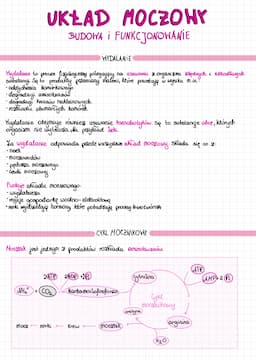 UKŁAD MOCZOWY
BUDOWA i FUNKCJONOWANIE
WYDALANIE
Wydalanie to proces fizjologiczny polegający na usuwaniu z organizmu zbędnych i szkodliwych
substancji. Są to produkty przemiany materii, które powstają w wyniku m.in.:
• oddychania komórkowego
• degradacji aminokwasów
• degradacji kwasów nukleinowych
• rozkładu czerwonych krwinek
Wydalanie obejmuje również usuwanie ksenobiotyków. Są to substancje obce, których
organizm nie wytwarza, np. leki.
Za wydalanie odpowiada przede wszystkim układ moczowy. Składa się on z:
• nerek
• moczowodów
• pęcherza moczowego
• cewki moczowej
Funkcje układu moczowego:
• wydalanie
• reguluje gospodarkę wodno-elektrolitową
• nerki wydzielają hormony, które pobudzają
CYKL MOCZNIKOWY
Mocznik jest jednym z produktów rozkładu aminokwasów.
2ATP 2ADP + Pi
NH₄⁺ + CO₂ karbamoilofosforan
cytrulina
ATP
AMP + 2Pi
Cykl
mocznikowy
ornityna
arginina
mocz nerki krew mocznik
H₂O